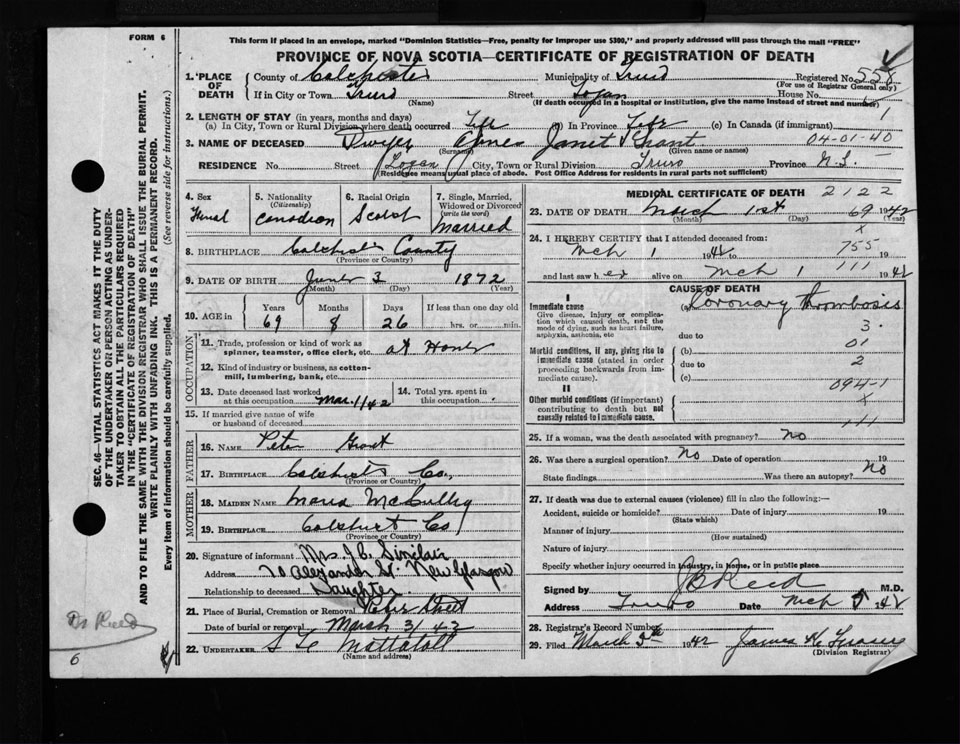 FORM 6
This form if placed in an envelope, marked "Dominion Statistics—Free, penalty for improper use $300," and properly addressed will pass through the mail "FREE"
PROVINCE OF NOVA SCOTIA—CERTIFICATE OF REGISTRATION OF DEATH
1. PLACE OF DEATH County of Colchester Municipality of Truro Registered No. 558
(For use of Registrar General only)
If in City or Town Truro Street Logan House No.
(Name) (If death occurred in a hospital or institution, give the name instead of street and number)
1
2. LENGTH OF STAY (in years, months and days)
(a) In City, Town or Rural Division where death occurred Life (b) In Province Life (c) In Canada (if immigrant)
04-01-40
3. NAME OF DECEASED Agnes Janet Grant
(Surname) (Given name or names)
RESIDENCE No. Street Logan City, Town or Rural Division Truro Province N.S.
(Residence means usual place of abode. Post Office Address for residents in rural parts not sufficient)
4. Sex 5. Nationality 6. Racial Origin 7. Single, Married, Widowed or Divorced
(Citizenship) (write the word)
Canadian Scotch Married
8. BIRTHPLACE Colchester County
(Province or Country)
9. DATE OF BIRTH June 3 1872
(Month) (Day)
10. AGE in Years Months Days If less than one day old
69 8 26 hrs. or min.
OCCUPATION
11. Trade, profession or kind of work as spinner, teamster, office clerk, etc. at Home
12. Kind of industry or business, as cotton-mill, lumbering, bank, etc.
13. Date deceased last worked at this occupation Mar. 1/42 14. Total yrs. spent in this occupation
15. If married give name of wife or husband of deceased
FATHER
16. NAME Peter Grant
17. BIRTHPLACE Colchester Co.
(Province or Country)
MOTHER
18. MAIDEN NAME Maria McCully
19. BIRTHPLACE Colchester Co
(Province or Country)
20. Signature of informant Mrs. J.C. Sinclair
Address 70 Alexander St. New Glasgow
Relationship to deceased Daughter
21. Place of Burial, Cremation or Removal Street
Date of burial or removal March 3/42
22. UNDERTAKER Mattatall
(Name and address)
MEDICAL CERTIFICATE OF DEATH 2122
23. DATE OF DEATH March 1st 69 1942
(Month) (Day)
24. I HEREBY CERTIFY that I attended deceased from:
x
Mch 1 1942 to 755
and last saw h er alive on Mch 1 111 1942
CAUSE OF DEATH
I
Immediate cause (a) Coronary thrombosis
Give disease, injury or complication which caused death, not the mode of dying, such as heart failure, asphyxia, asthenia, etc
3.
due to
01
Morbid conditions, if any, giving rise to immediate cause (stated in order proceeding backwards from immediate cause).
(b)
due to 2
(c)
094-1
II
Other morbid conditions (if important) contributing to death but not causally related to immediate cause.
x
111
25. If a woman, was the death associated with pregnancy? no
26. Was there a surgical operation? No Date of operation 19
State findings Was there an autopsy? No
27. If death was due to external causes (violence) fill in also the following:—
Accident, suicide or homicide? Date of injury 19
(State which)
Manner of injury
(How sustained)
Nature of injury
Specify whether injury occurred in industry, in home, or in public place
Signed by Reed M.D.
Address Truro Date Mch 1942
28. Registrar's Record Number
29. Filed March 1942 James
(Division Registrar)
SEC. 46—VITAL STATISTICS ACT MAKES IT THE DUTY OF THE UNDERTAKER OR PERSON ACTING AS UNDERTAKER TO OBTAIN ALL THE PARTICULARS REQUIRED IN THE "CERTIFICATE OF REGISTRATION OF DEATH"
AND TO FILE THE SAME WITH THE DIVISION REGISTRAR WHO SHALL ISSUE THE BURIAL PERMIT.
WRITE PLAINLY WITH UNFADING INK. THIS IS A PERMANENT RECORD.
Every item of information should be carefully supplied. (See reverse side for Instructions.)
Dr Reed
6